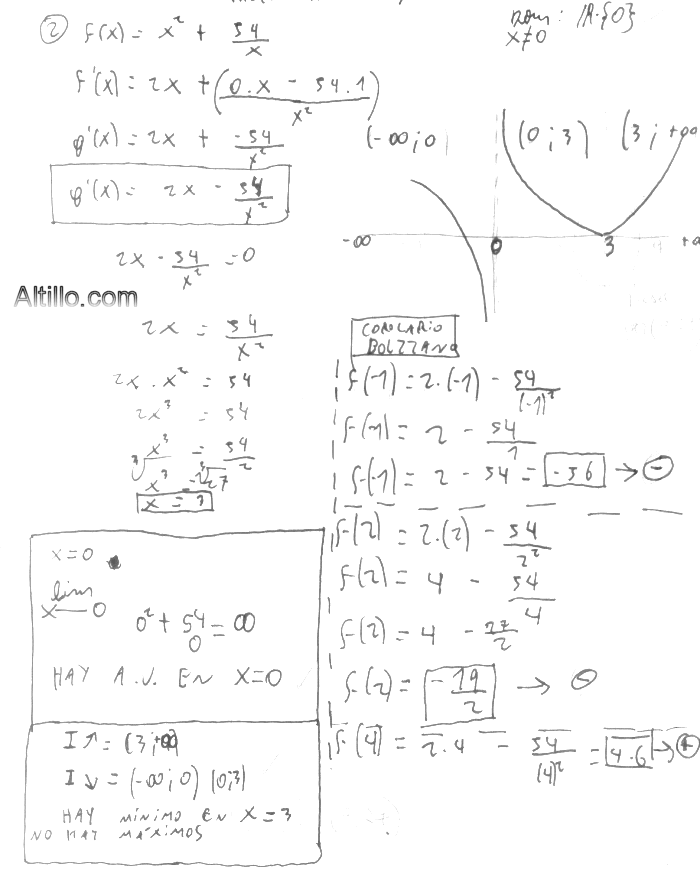 ② f(x) = x² + 54/x
Dom: IR-{0}
x≠0
f'(x) = 2x + (0.x - 54.1)/x²
f'(x) = 2x + -54/x²
f'(x) = 2x - 54/x²
2x - 54/x² = 0
Altillo.com
2x = 54/x²
2x . x² = 54
2x³ = 54
x³ = 54/2
³√x³ = ³√27
x = 3
(-∞;0) (0;3) (3;+∞
-∞ 0 3 +∞
COROLARIO
BOLZZANO
f(-1) = 2.(-1) - 54/(-1)²
f(-1) = 2 - 54/1
f(-1) = 2 - 54 = -56 → ⊖
f(2) = 2.(2) - 54/2²
f(2) = 4 - 54/4
f(2) = 4 - 27/2
f(2) = -19/2 → ⊖
f(4) = 2.4 - 54/(4)² = 4.6 → ⊕
x=0
lim x→0
0² + 54/0 = ∞
HAY A.V. EN X=0
I↑ = (3;+∞)
I↓ = (-∞;0) (0;3)
HAY MÍNIMO EN X=3
NO HAY MÁXIMOS